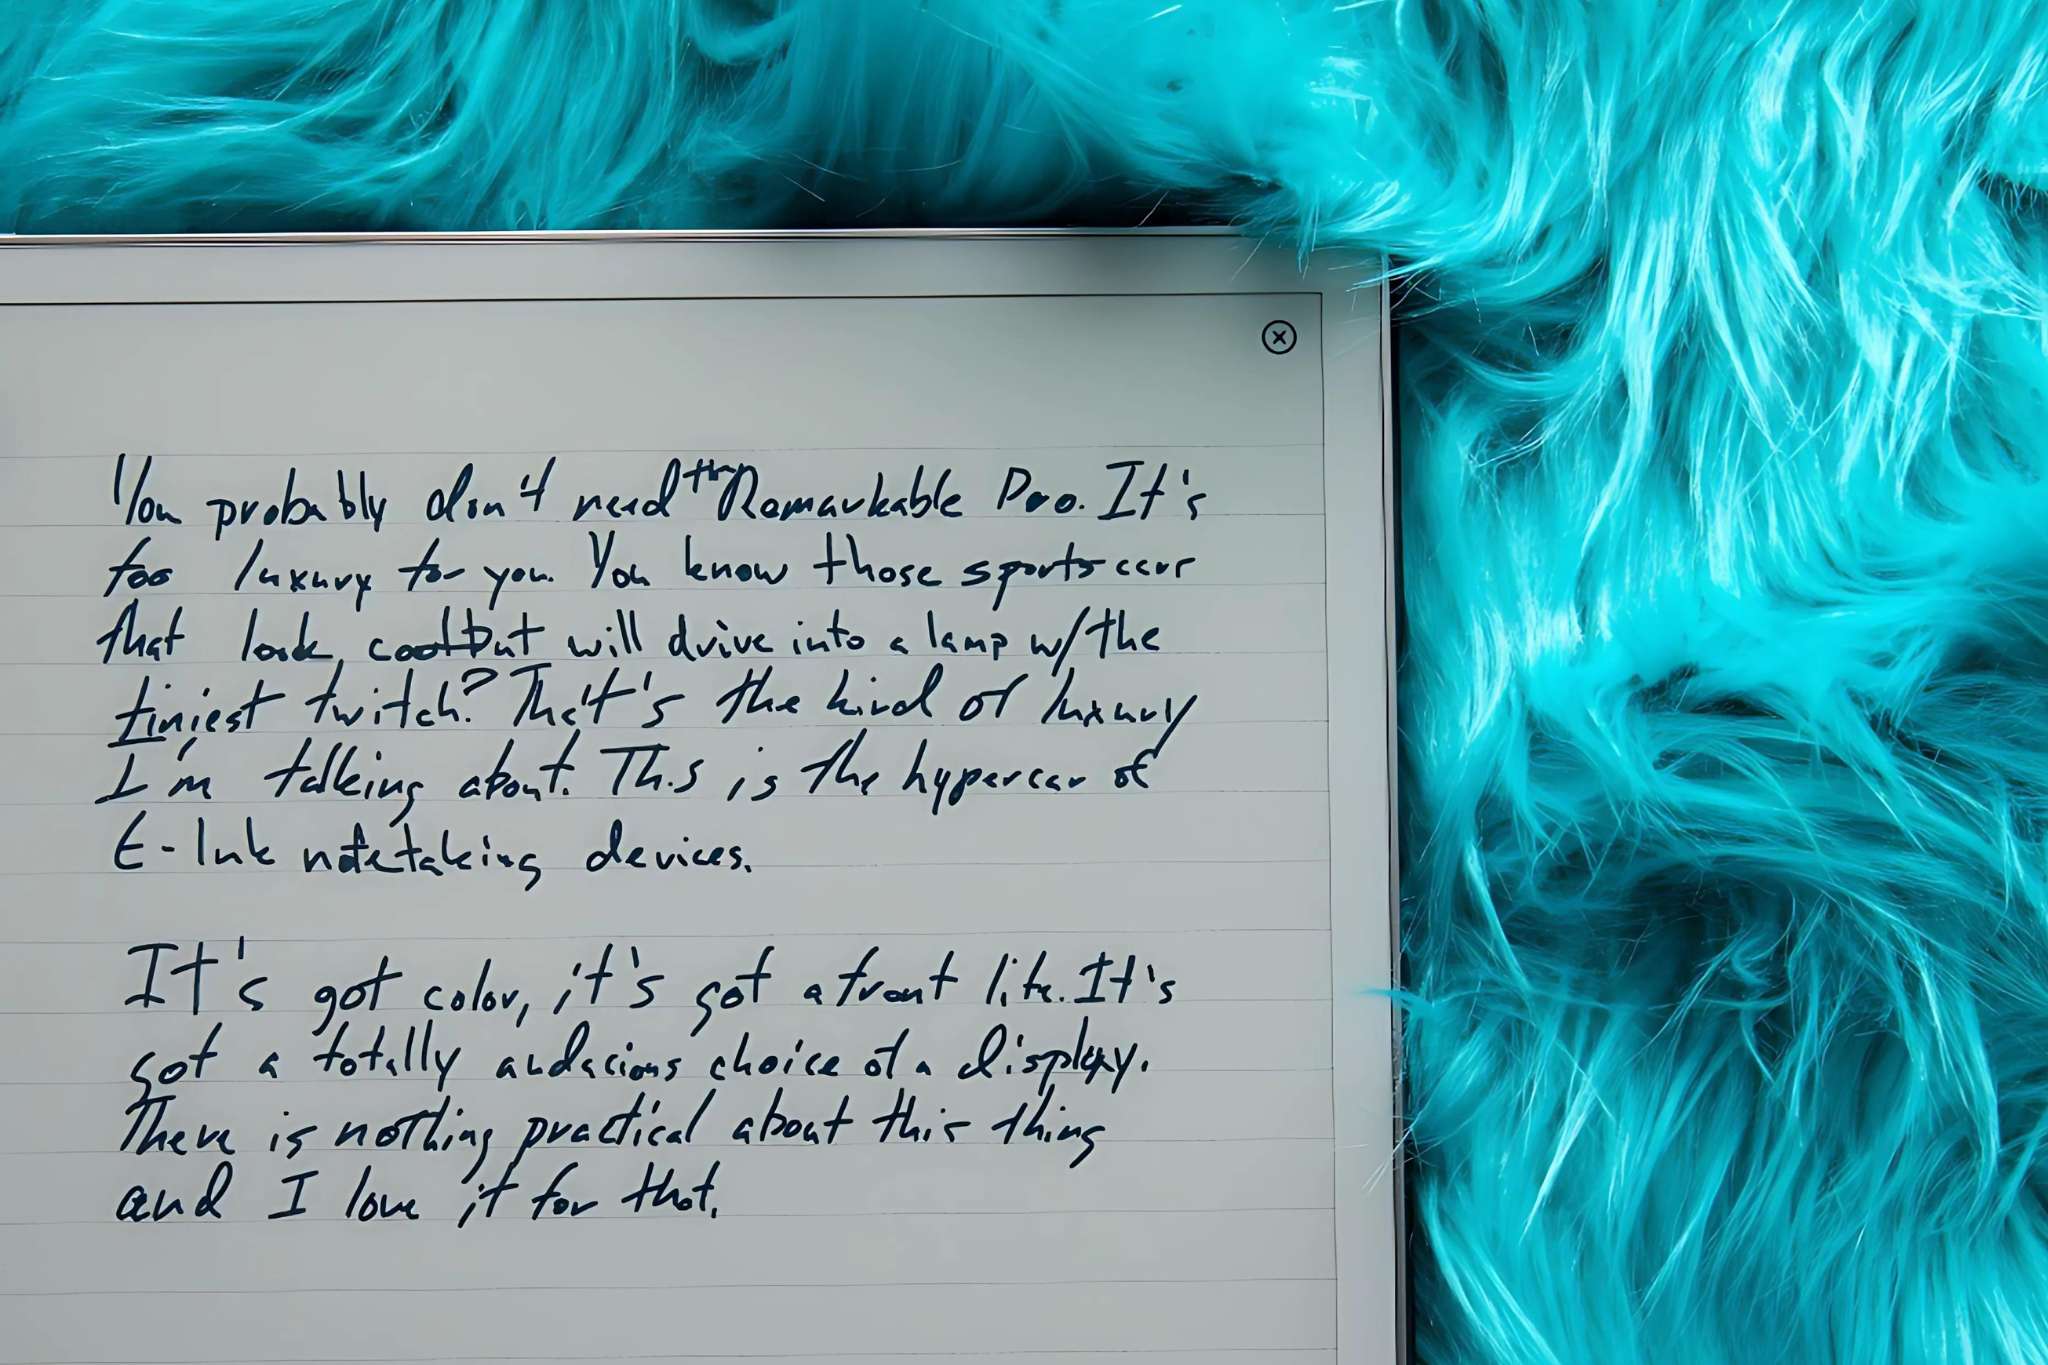 You probably don't need the Remarkable Pro. It's
too luxury for you. You know those sports cars
that look cool but will drive into a lamp w/ the
tiniest twitch? That's the kind of luxury
I'm talking about. This is the hypercar of
E-Ink notetaking devices.
It's got color, it's got a front lite. It's
got a totally audacious choice of a display.
There is nothing practical about this thing
and I love it for that.